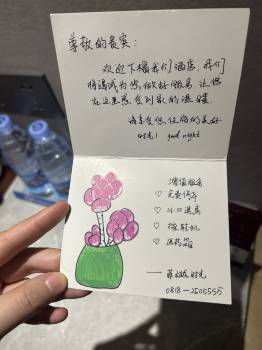 尊敬的贵宾:
欢迎下榻我们酒店,我们
将竭诚为您做好服务,让您
在这里感受到家的温暖
请享受您住宿的美好
时光! good night
增值服务
♡ 免费停车
♡ 14:00退房
♡ 擦鞋机
♡ 医药箱
0818-2605555